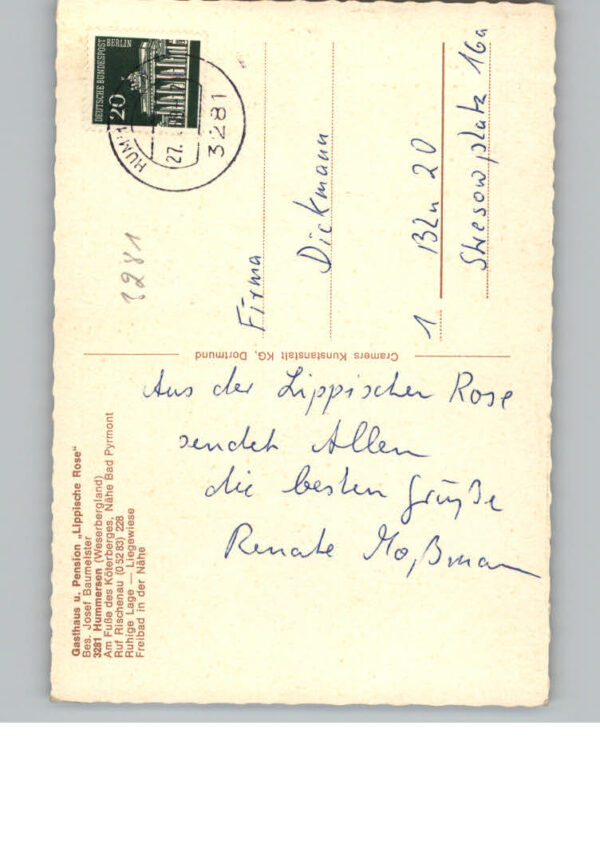 Gasthaus u. Pension „Lippische Rose"
Bes. Josef Baumeister
3281 Hummersen (Weserbergland)
Am Fuße des Köterberges, Nähe Bad Pyrmont
Ruf Rischenau (05283) 228
Ruhige Lage — Liegewiese
Freibad in der Nähe
Aus der Lippischen Rose
sendet Allen
die besten Grüße
Renate Moßmann
Cramers Kunstanstalt KG, Dortmund
DEUTSCHE BUNDESPOST BERLIN
20
HUMM
27.
3281
3281
Firma
Dickmann
1 Bln 20
Stresowplatz 16a